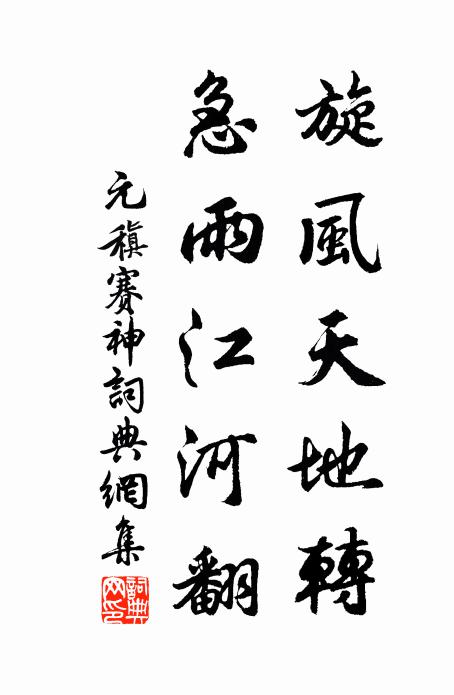 旋風天地轉
急雨江河翻
元稹賽神詞典網集
詞典網印